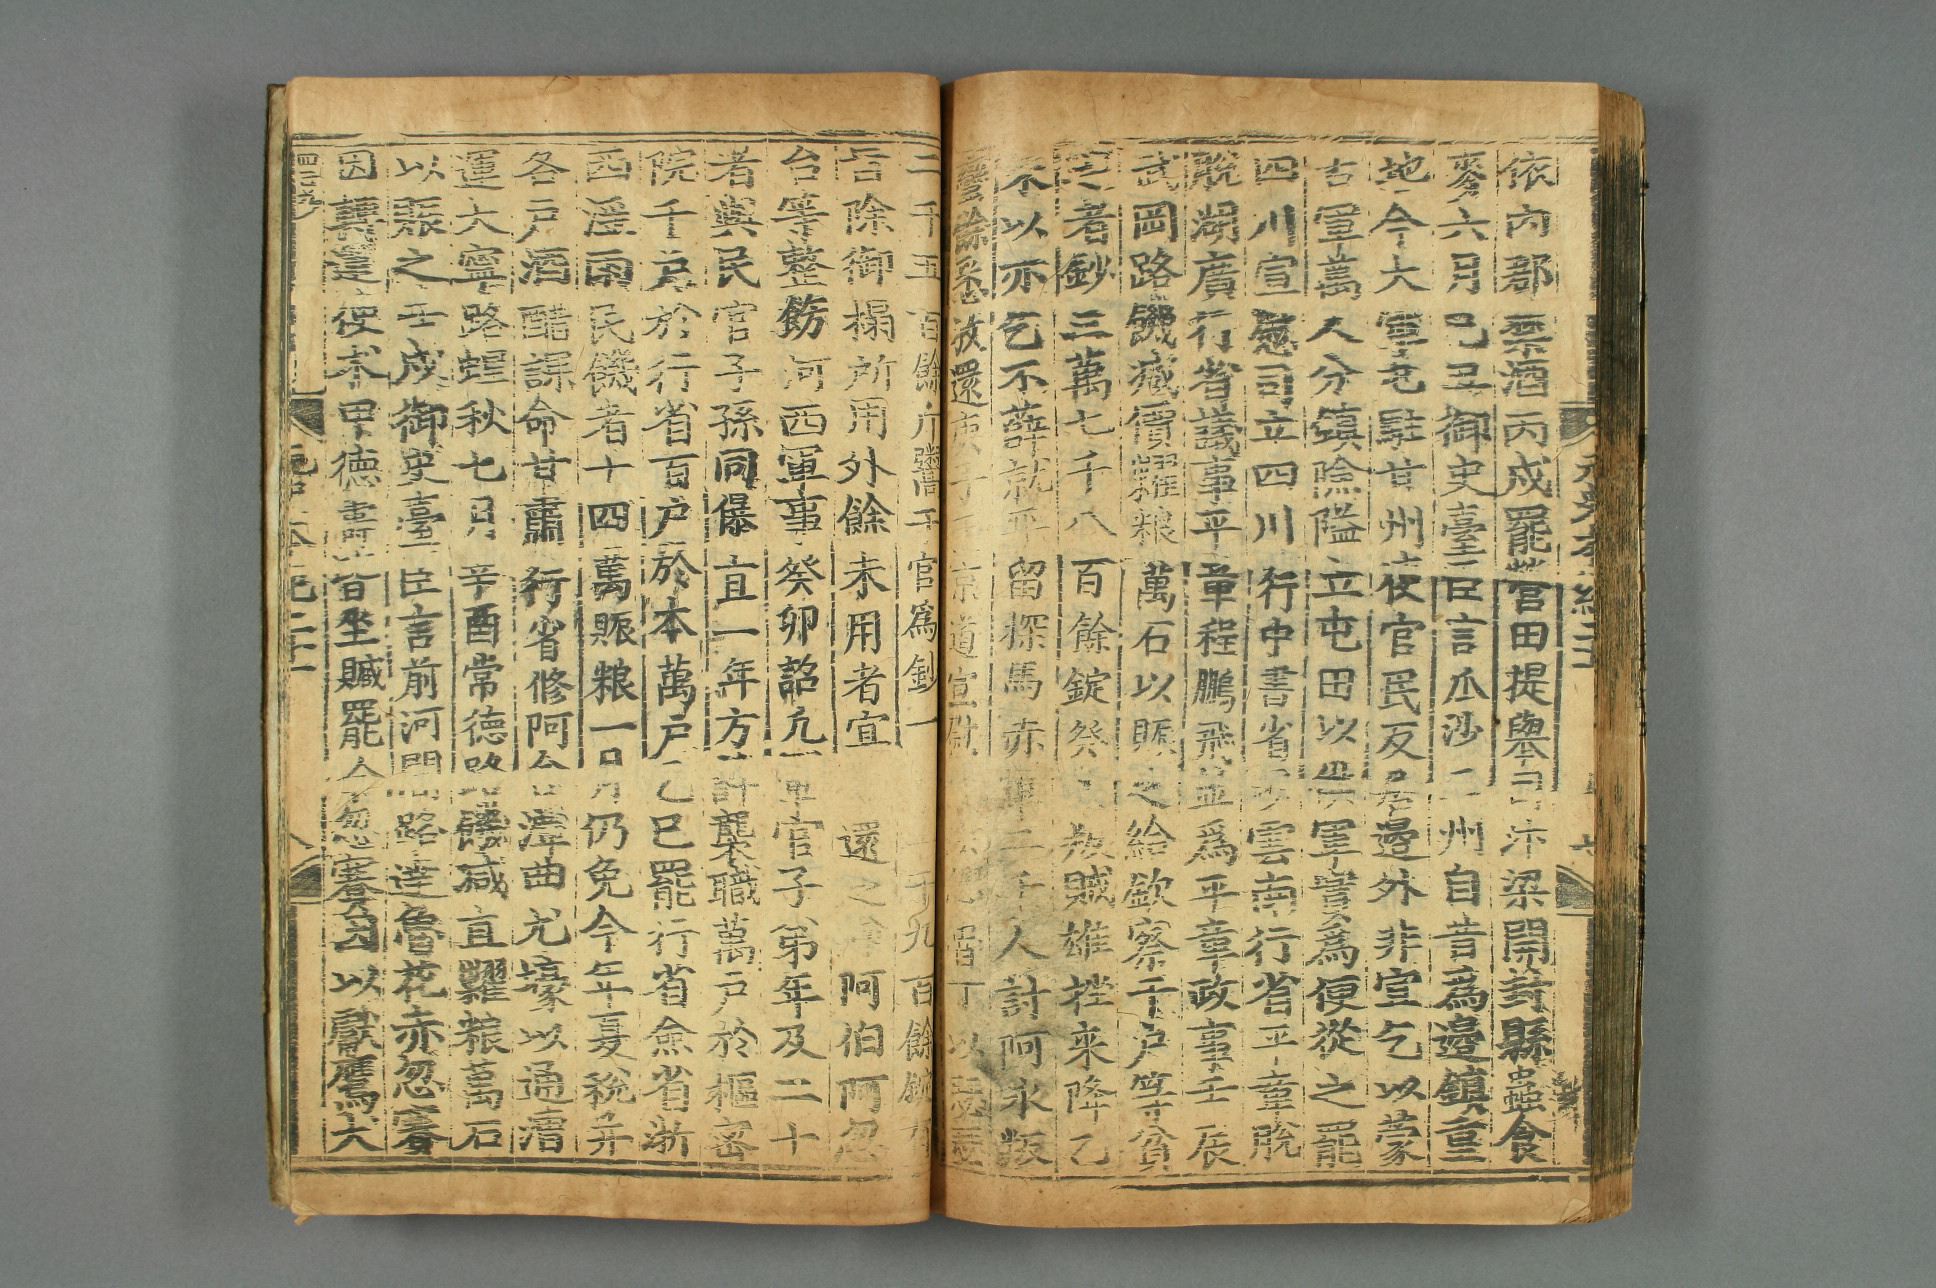 依內郡禁酒丙戍罷營官田提舉司汴梁開封縣蟲食
麥六月己丑御史臺臣言瓜沙二州自昔爲邊鎮重
地今大軍屯駐甘州使官民反居邊外非宜乞以蒙
古軍萬人分鎮險隘立屯田以供軍實爲便從之罷
四川宣慰司立四川行中書省以雲南行省平章脫
脫湖廣行省議事平章程鵬飛並爲平章政事壬辰
武岡路饑減價糶粮萬石以賑之給欽察千户等貧
乏者鈔三萬七千八百餘錠癸 叛賊雄挫來降乙
不以亦乞不薛就平留探馬赤軍二千人討阿永叛
蠻餘悉放還 道宣慰
二千五百餘斤鬻于官爲鈔一 千九百餘錠有
旨除御榻所用外餘未用者宜 還之 阿伯阿忽
台等整飭河西軍事癸卯詔凡 軍官子弟年及二十
者與民官子孫同傔直一年方許襲職萬户於樞密
院千户於行省百户於本萬户乙巳罷行省僉省浙
西滛雨民饑者十四萬賑粮一月仍免今年夏稅并
各户酒醋課命甘肅行省修阿合潭曲尤壕以通漕
運大寧路蝗秋七月辛酉常德路饑减直糶粮萬石
以賑之壬戍御史臺臣言前河間路達魯花赤忽賽
因轉運使术甲德壽皆坐贓罷今忽賽因以獻鷹犬